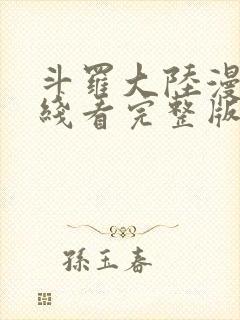 斗羅大陸漫
綫看完整版
孫玉春